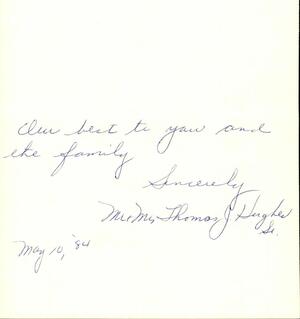 Our best to you and
the family
Sincerely
Mr & Mrs Thomas J Hughes
Sr.
May 10, '84